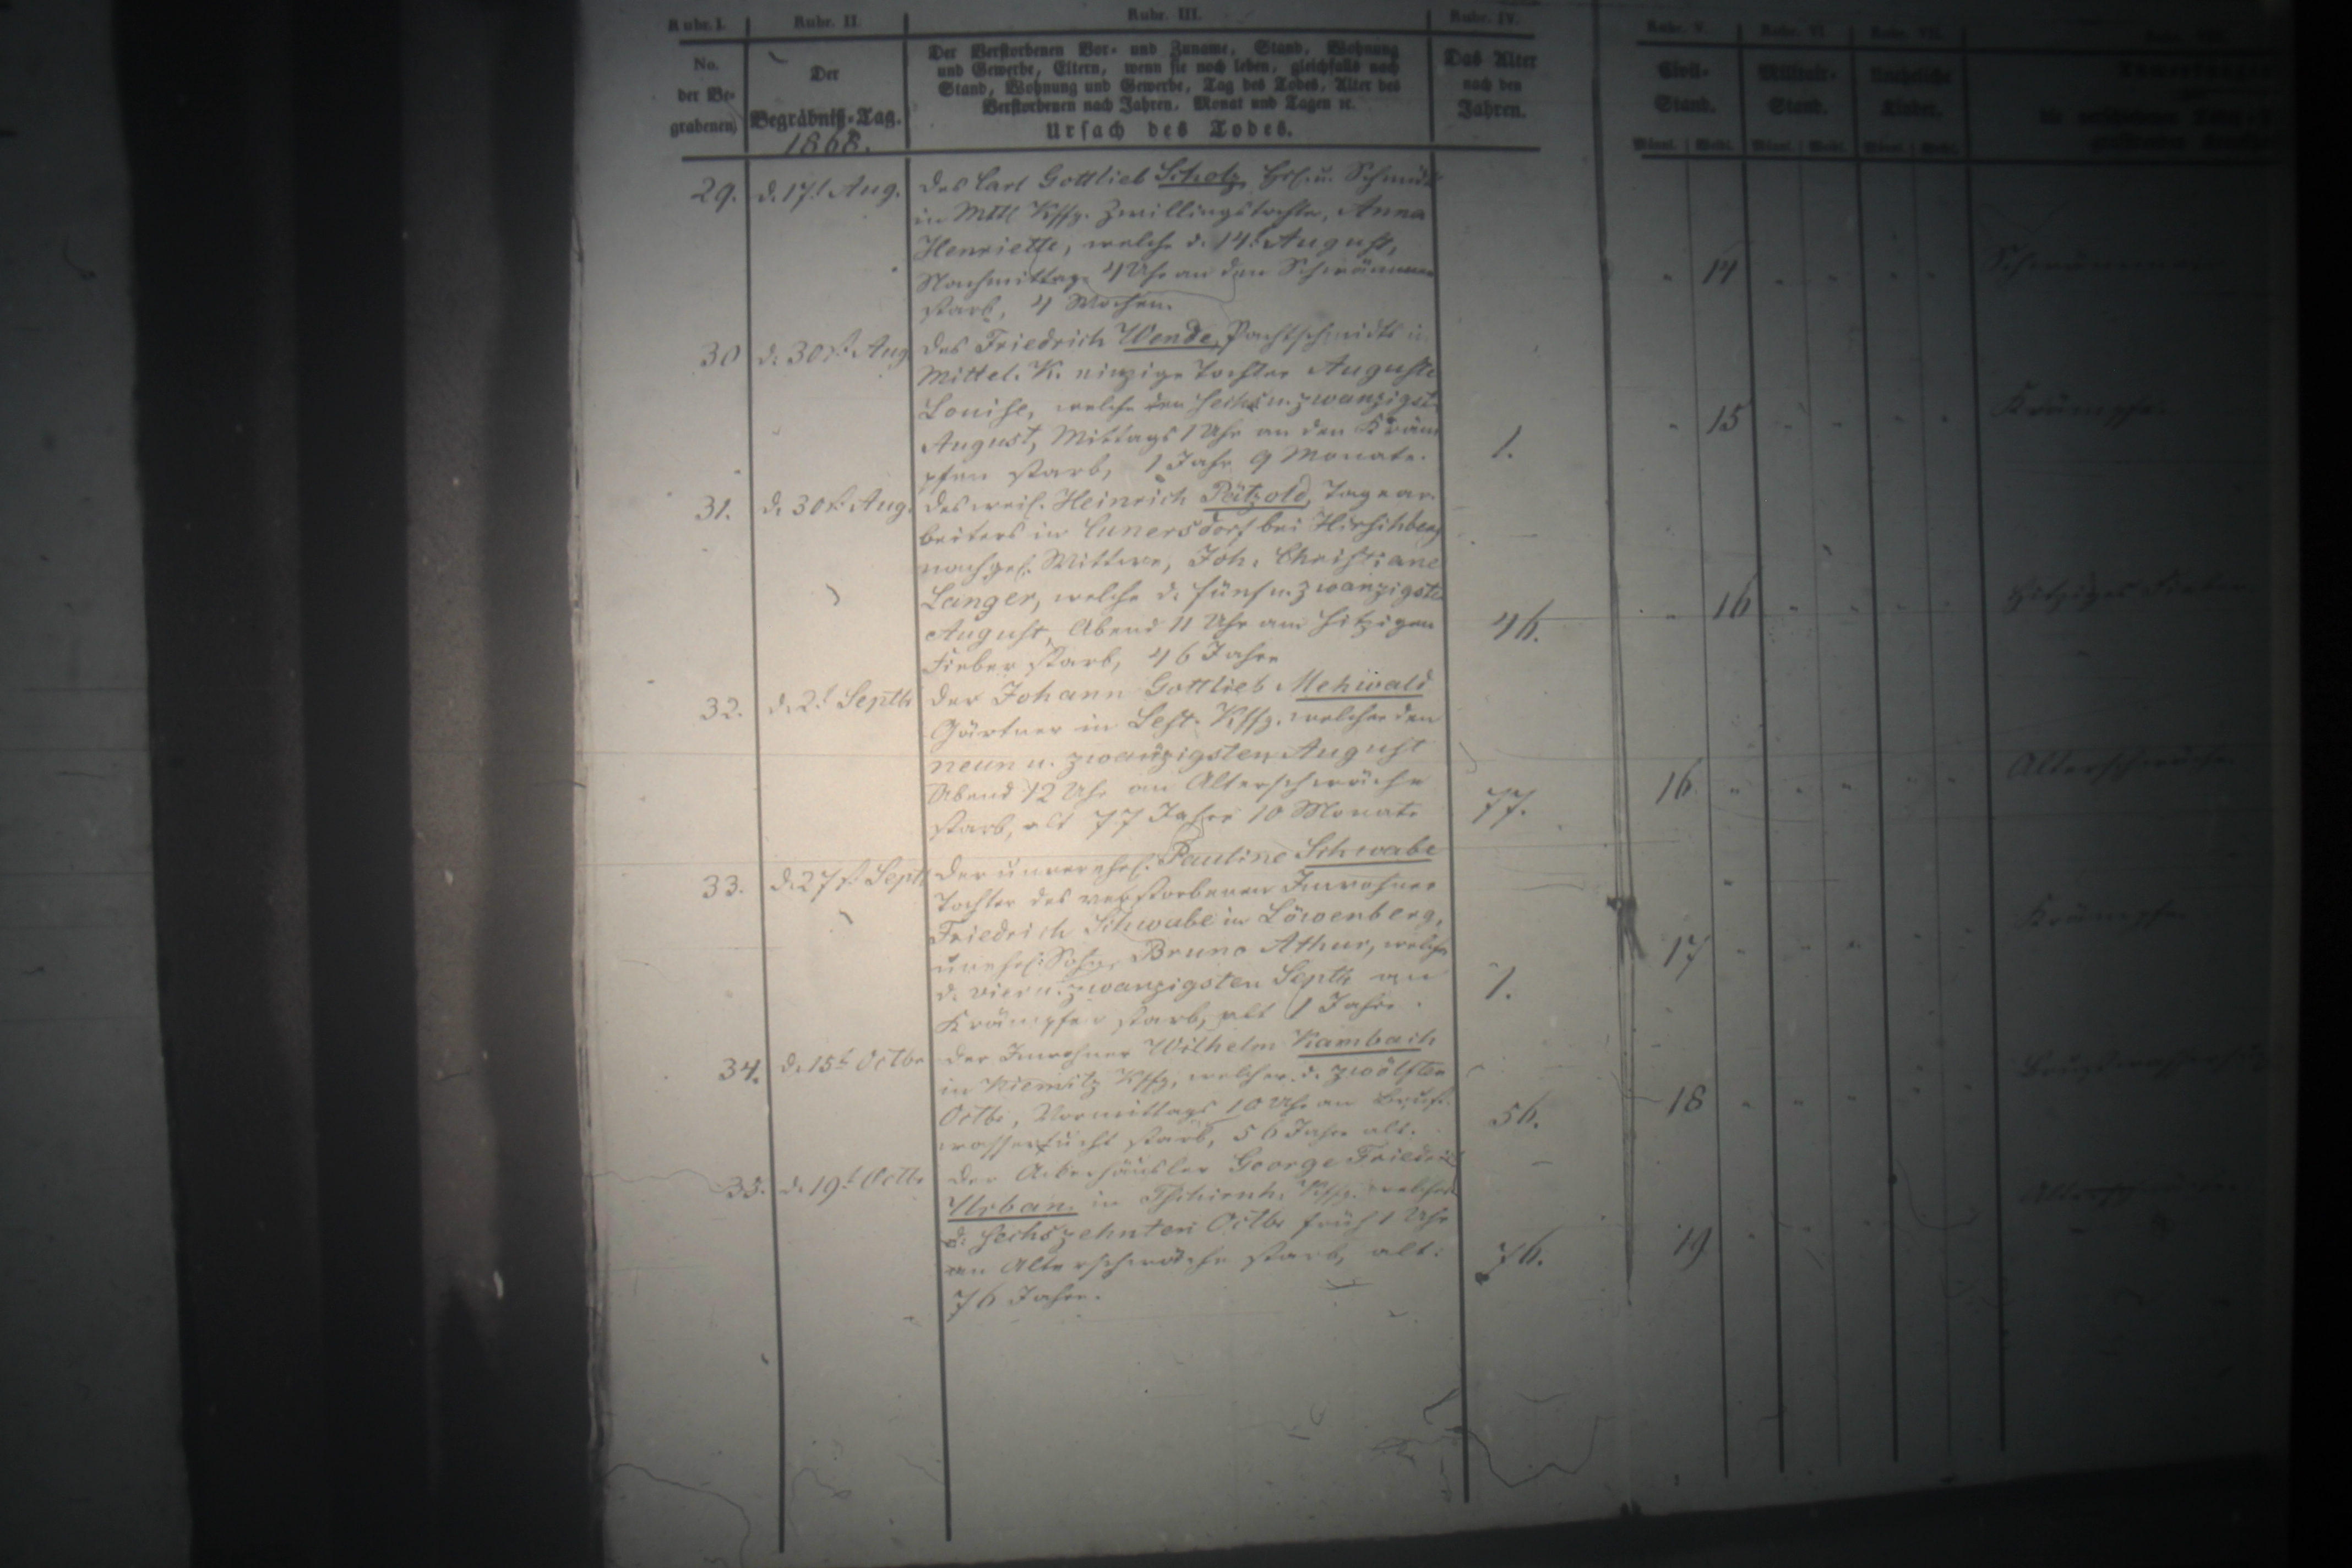 Rubr. I. Rubr. II. Rubr. III. Rubr. IV. Rubr. V. Rubr. VI. Rubr. VII.
No.
der Be-
grabenen
Der
Begräbniß-Tag.
1868.
Der Verstorbenen Vor- und Zuname, Stand, Wohnung
und Gewerbe, Eltern, wenn sie noch leben, gleichfalls nach
Stand, Wohnung und Gewerbe, Tag des Todes, Alter des
Verstorbenen nach Jahren, Monat und Tagen ꝛc.
Ursach des Todes.
Das Alter
nach den
Jahren.
Civil-
Stand.
Militair-
Stand.
Uneheliche
Kinder.
Männl. Weibl. Männl. Weibl. Männl. Weibl.
29. d. 17t Aug. des Carl Gottlieb Scholz,
in Mttl Kffg. Zwillingstochter, Anna
Henriette, welche d. 14t August,
Nachmittag 4 Uhr an den Schwämmen 14
starb, 4 Wochen.
30 d. 30st Aug des Friedrich Wende, Pachtschmidts in
Mittel. K. einzige Tochter Auguste
Louise, welche den sechs u. zwanzigst.
August, Mittags 1 Uhr an den Kräm 15 Krämpfe
pfen starb, 1 Jahr 9 Monate. 1.
31. d. 30st Aug. des weil. Heinrich Pätzold, Tagear-
beiters in Cunersdorf bei Hirschberg
nachgel. Wittwe, Joh. Christiane
Langer, welche d. fünf u. zwanzigste 16 Hitziges Fieber
August, Abend 11 Uhr am hitzigen 46.
Fieber starb, 46 Jahre
32. d. 2t Septb der Johann Gottlieb Mehwald
Gärtner in Lest. Kffg. welcher den
neun u. zwanzigsten August
Abend 12 Uhr an Alterschwäche 16 Alterschwäche
starb, alt 77 Jahre 10 Monate 77.
33. d. 27st Septb der unverehel. Pauline Schwabe
Tochter des verstorbenen Inwohner
Friedrich Schwabe in Löwenberg,
unehel. Sohn, Bruno Athur, welcher 17 Krämpfe
d. vier u. zwanzigsten Septb an 1.
Krämpfen starb, alt 1 Jahr.
34. d. 15t Octbr der Inwohner Wilhelm Kambach
in Niemitz Kffg, welcher d. zwölften
Octbr, Vormittags 10 Uhr an Brust- 56. 18
wassersucht starb, 56 Jahre alt.
35. d. 19t Octbr der Ackerhäusler George Friedrich
Urban. in Tschirnh. Kffg. welcher
d. sechszehnten Octbr früh 1 Uhr 19
an Alterschwäche starb, alt: 76.
76 Jahre.